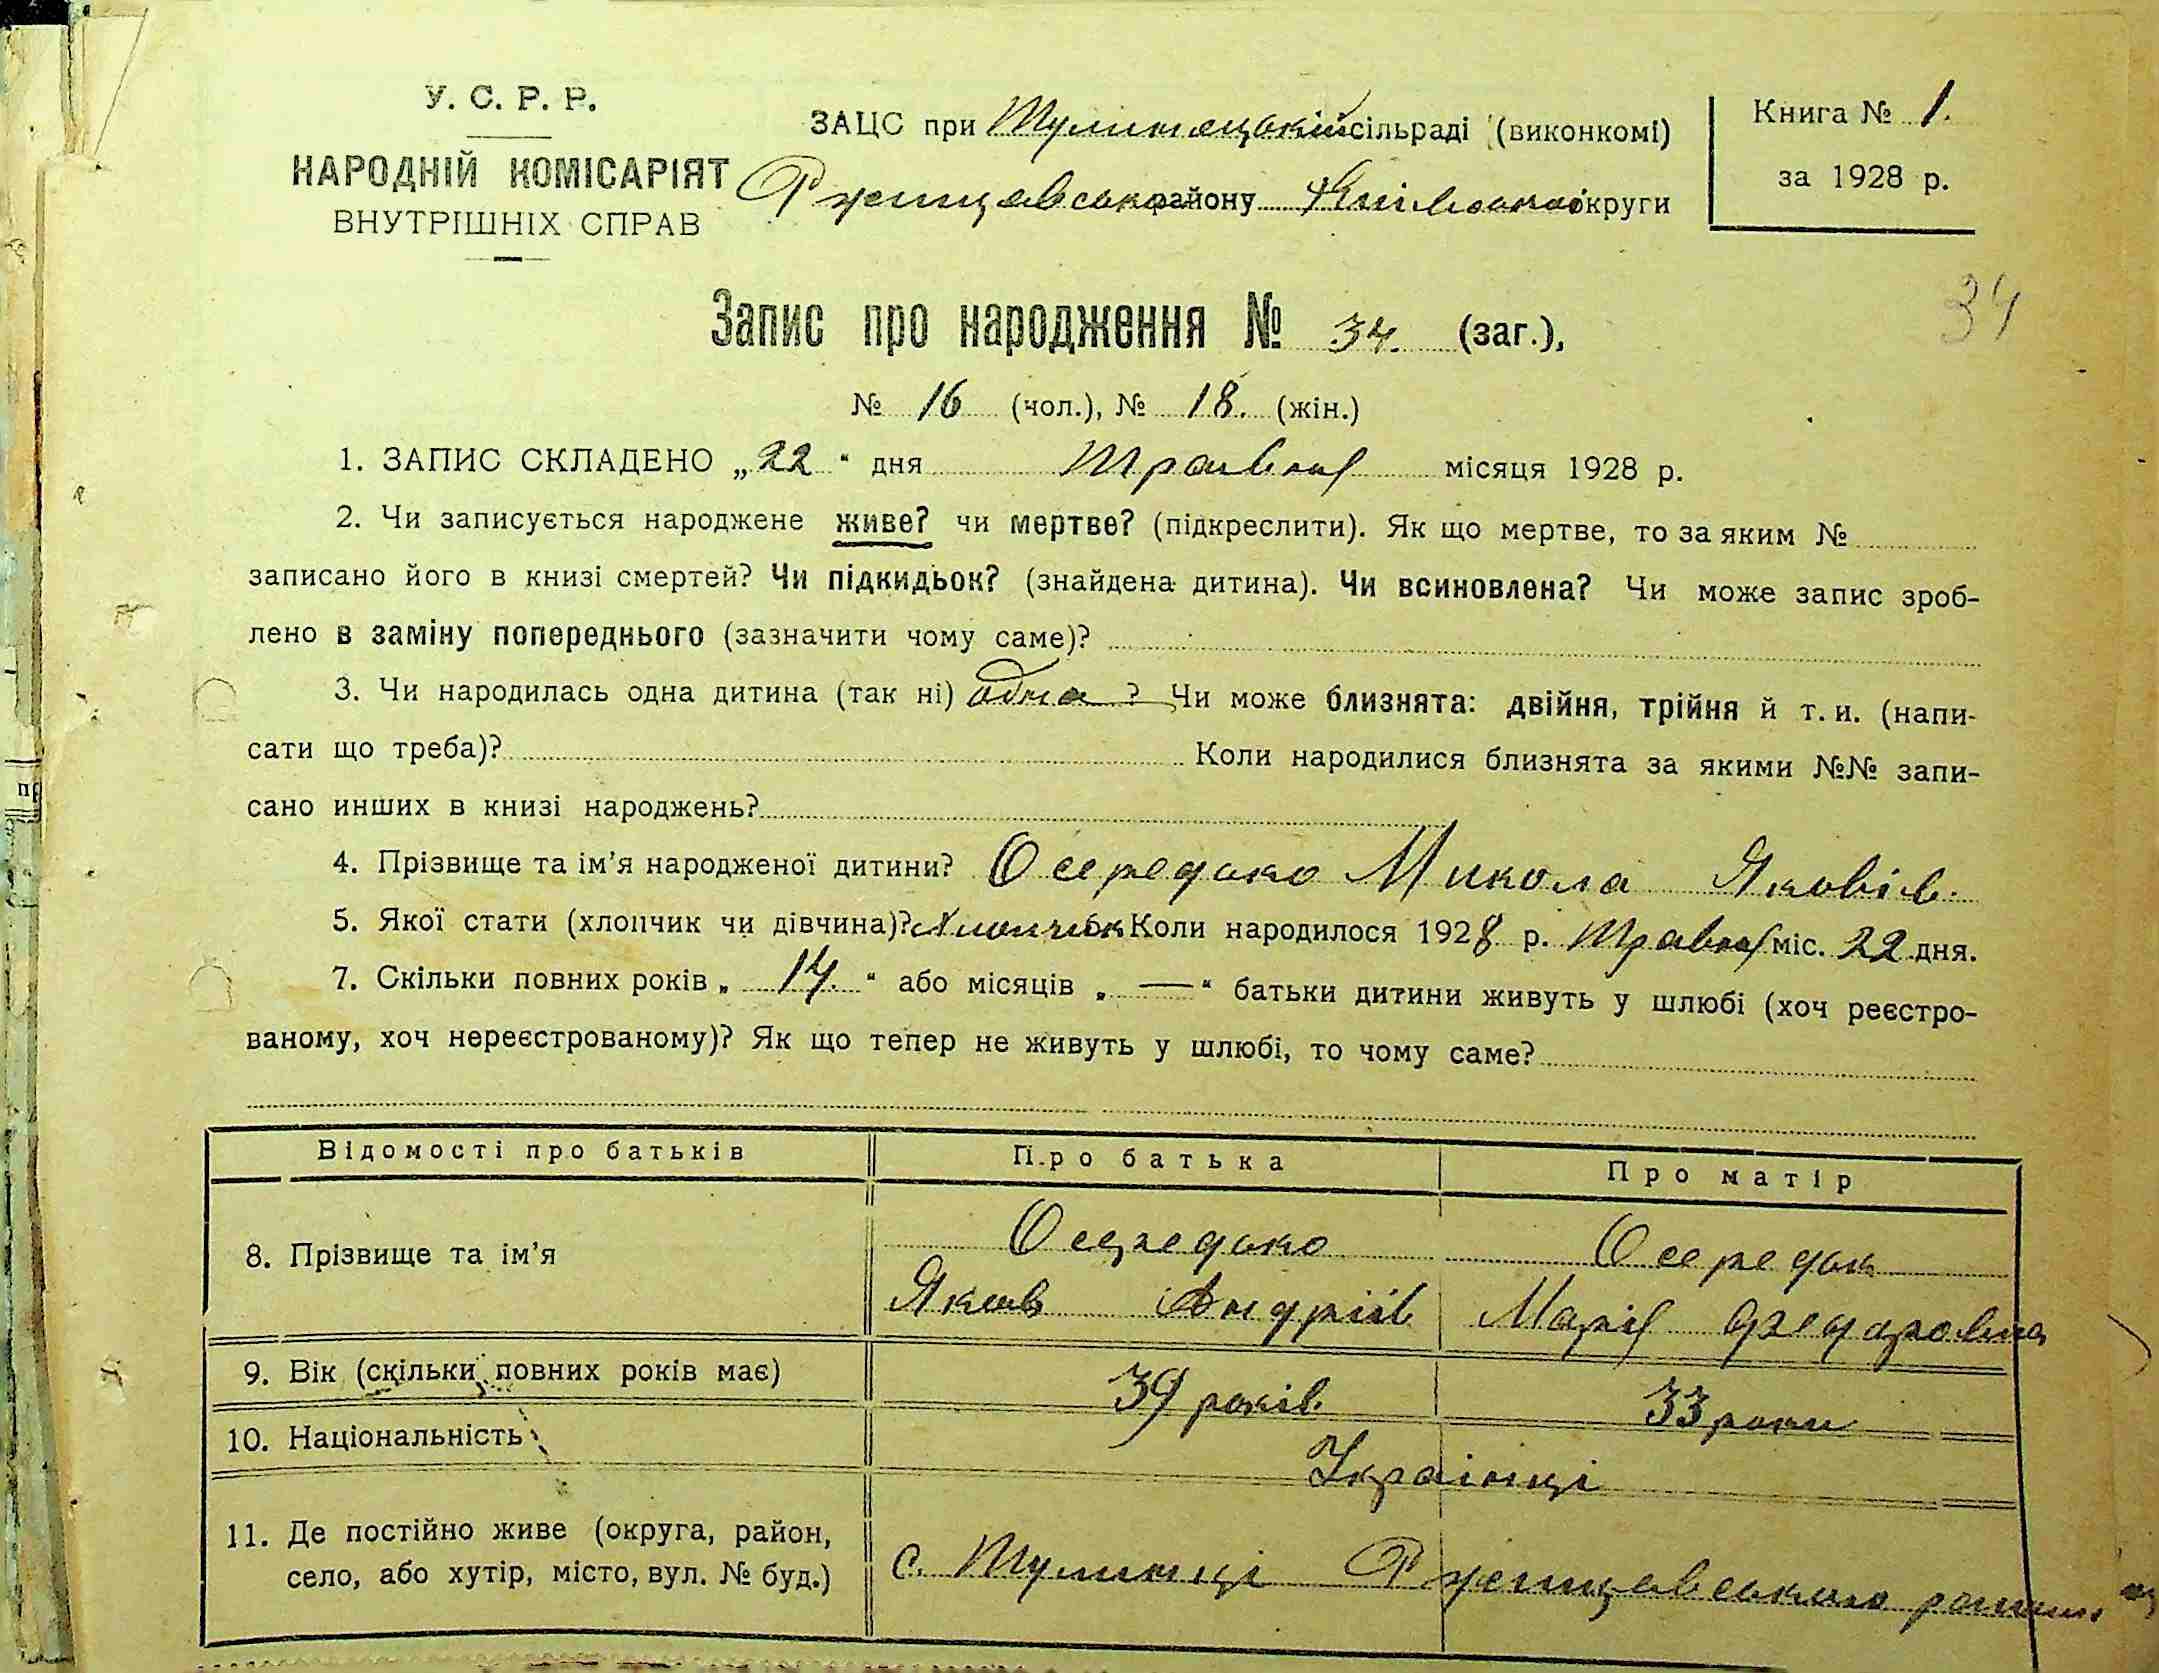 У. С. Р. Р.
НАРОДНІЙ КОМІСАРІЯТ
ВНУТРІШНІХ СПРАВ
ЗАЦС при Тулинецькій сільраді (виконкомі)
Ржищевськ району Київської округи
Книга № 1.
за 1928 р.
34
Запис про народження № 34. (заг.),
№ 16 (чол.), № 18. (жін.)
1. ЗАПИС СКЛАДЕНО „22“ дня Травня місяця 1928 р.
2. Чи записується народжене живе? чи мертве? (підкреслити). Як що мертве, то за яким №
записано його в книзі смертей? Чи підкидьок? (знайдена дитина). Чи всиновлена? Чи може запис зроб-
лено в заміну попереднього (зазначити чому саме)?
3. Чи народилась одна дитина (так ні) одна ? Чи може близнята: двійня, трійня й т. и. (напи-
сати що треба)? Коли народилися близнята за якими №№ запи-
сано инших в книзі народжень?
4. Прізвище та ім’я народженої дитини? Осередько Микола Яковів.
5. Якої стати (хлопчик чи дівчина)? Хлопчик Коли народилося 1928 р. Травня міс. 22 дня.
7. Скільки повних років „ 14. “ або місяців „ — “ батьки дитини живуть у шлюбі (хоч реєстро-
ваному, хоч нереєстрованому)? Як що тепер не живуть у шлюбі, то чому саме?
Відомості про батьків Про батька Про матір
8. Прізвище та ім’я
Осередько Осередьк
Яков Андріїв Марія Федоровна
9. Вік (скільки повних років має) 39 років. 33 роки
10. Національність Українці
11. Де постійно живе (округа, район,
село, або хутір, місто, вул. № буд.)
с. Тулинці Ржищевського